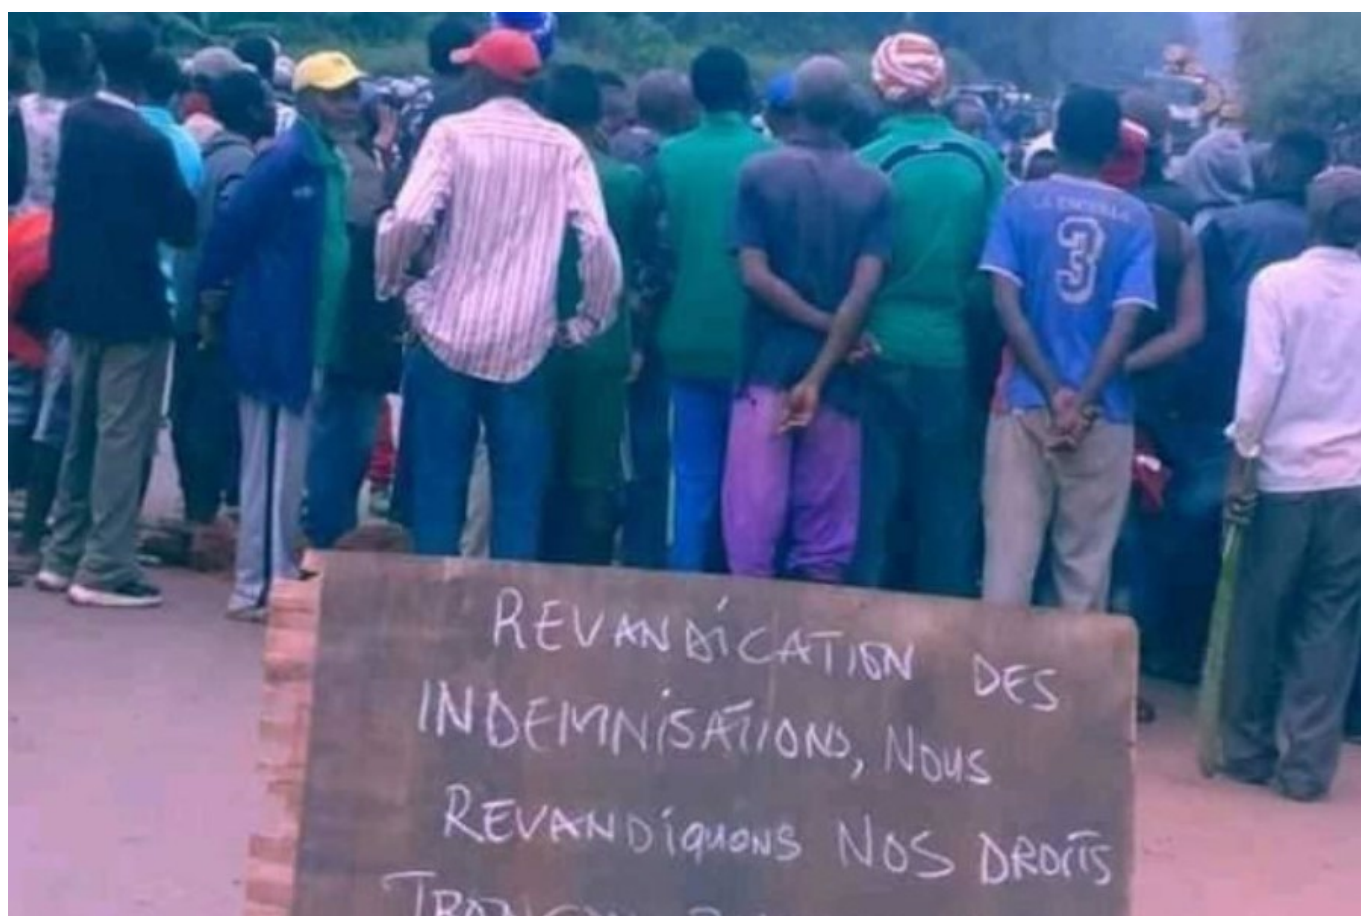 3
REVANDICATION DES
INDEMNISATIONS, NOUS
REVANDIQUONS NOS DROITS